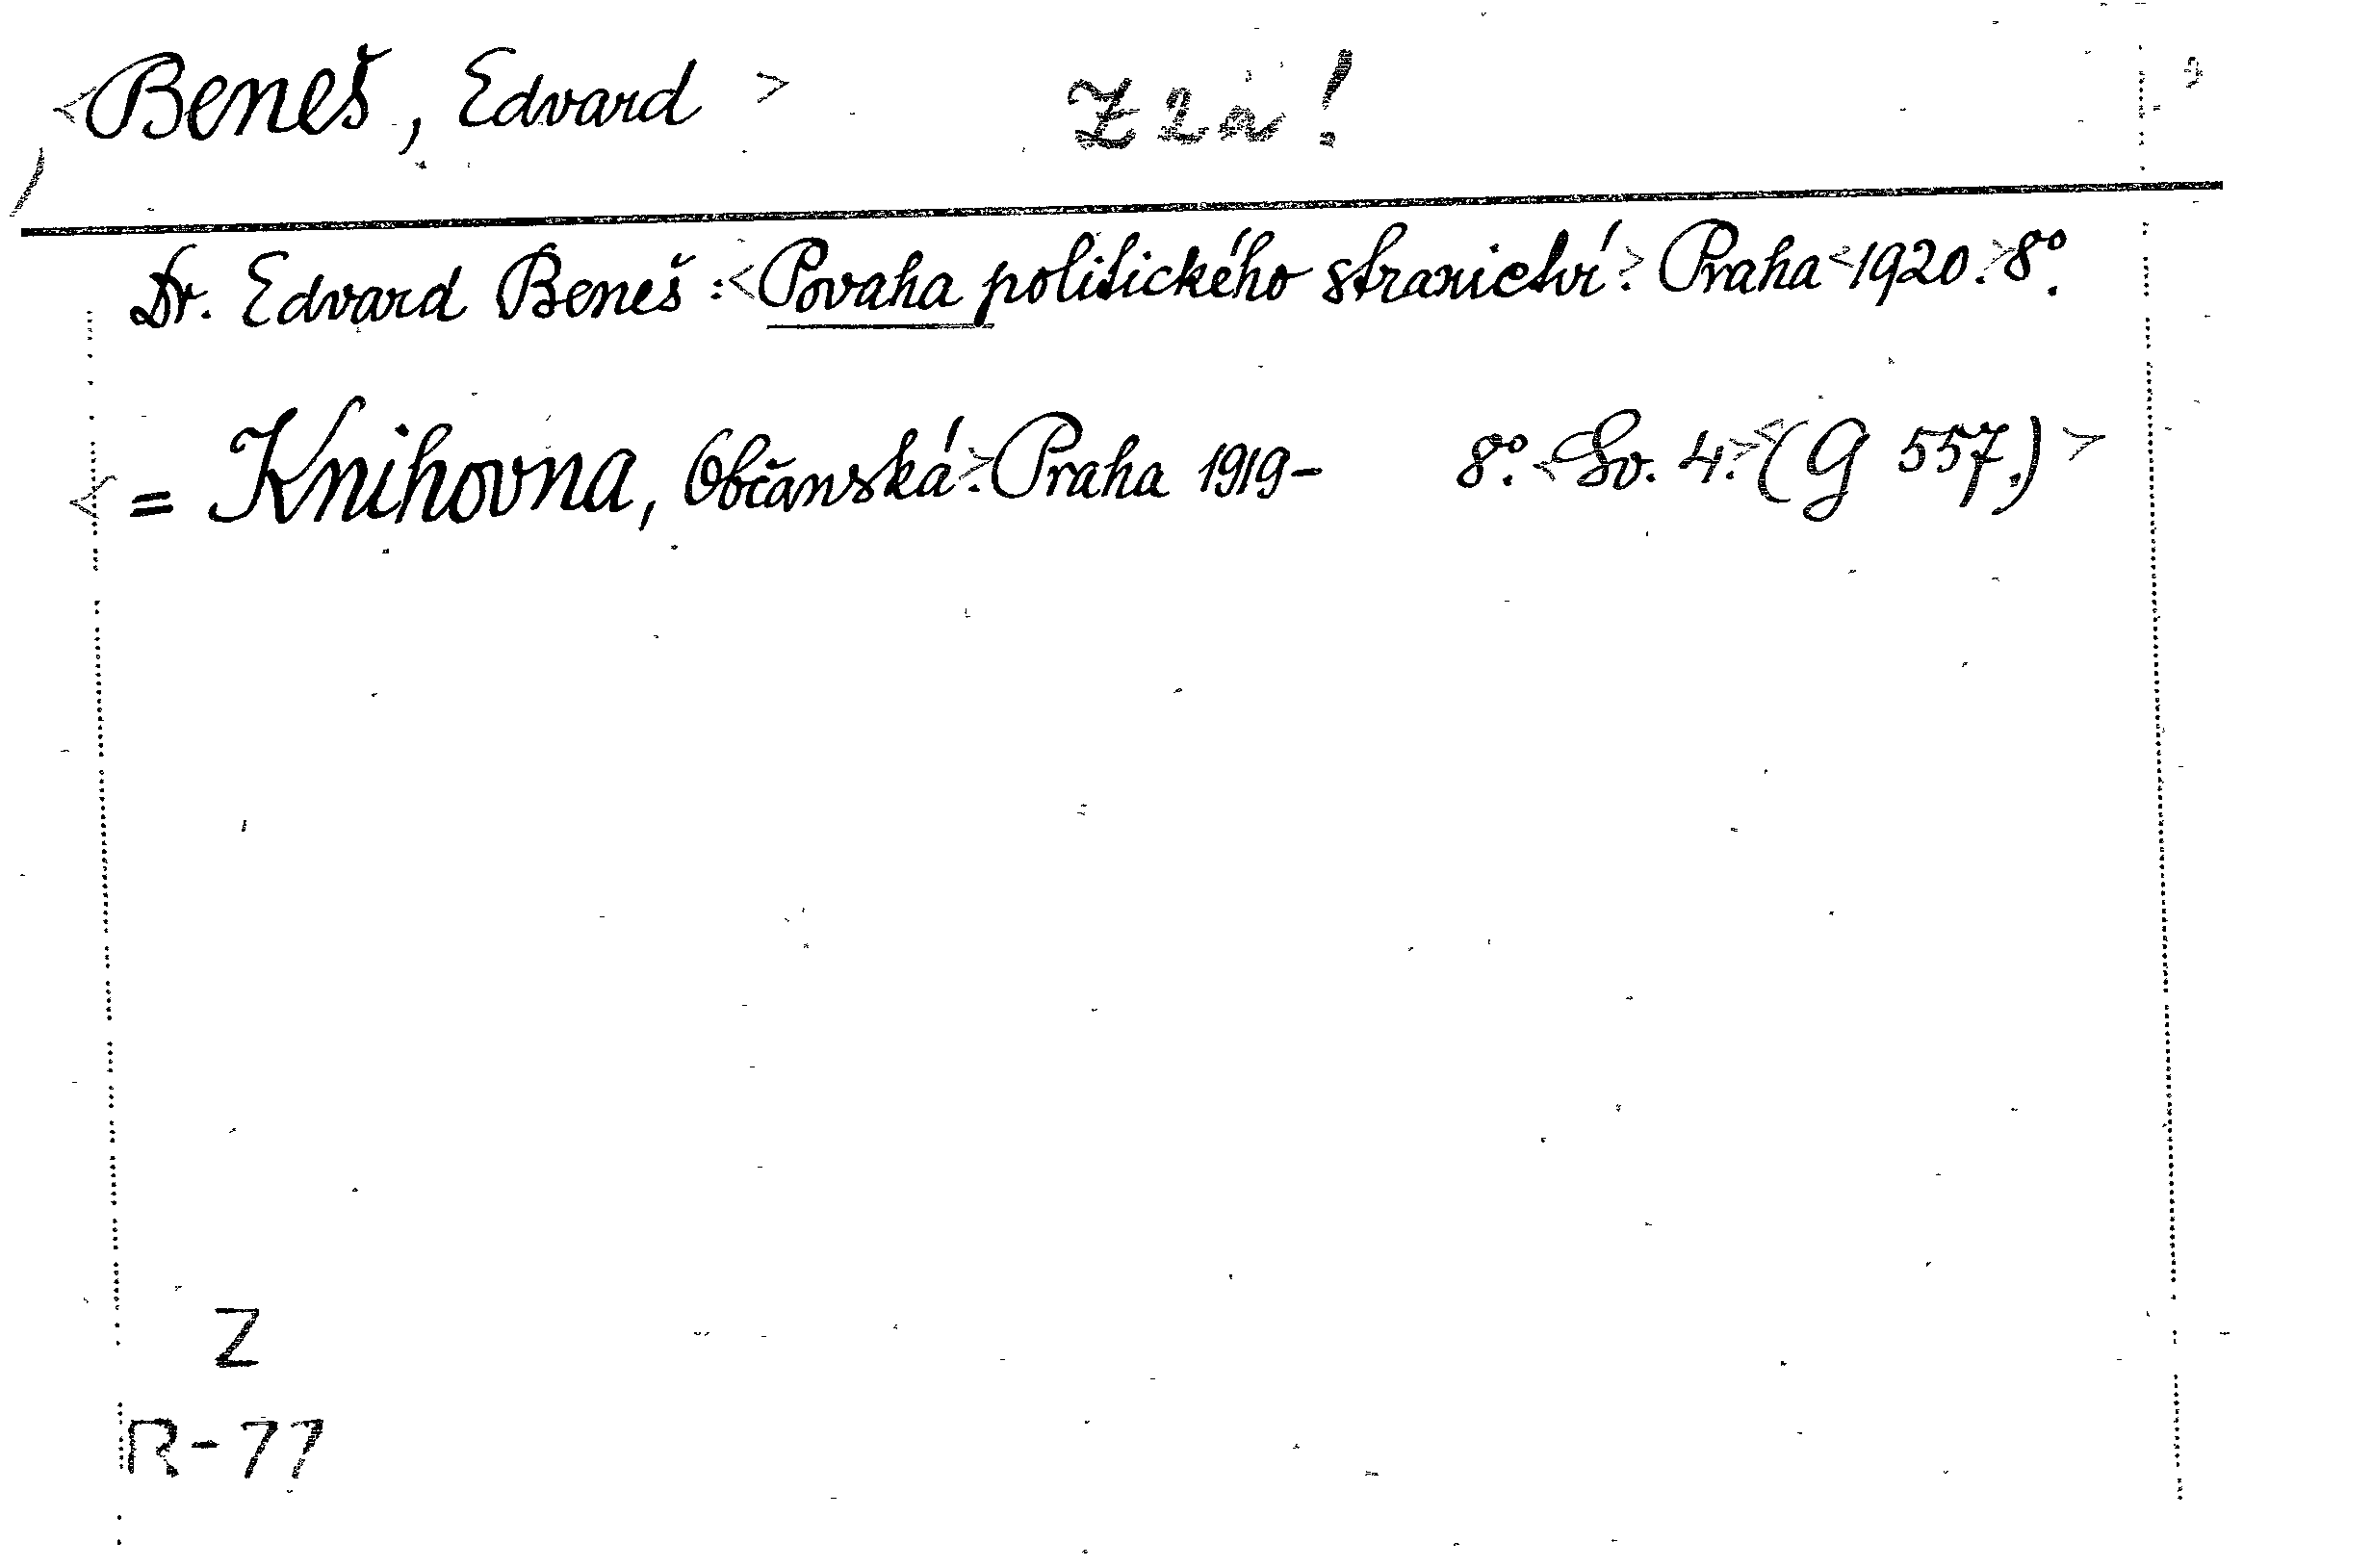 <Beneš, Edvard > Z 2a !
Dr. Edvard Beneš :<Povaha politického stranictví>. Praha <1920.> 8°.
<= Knihovna, Občanská>. Praha 1919- 8°. <Sv. 4.><(G 557.)>
Z
R-77